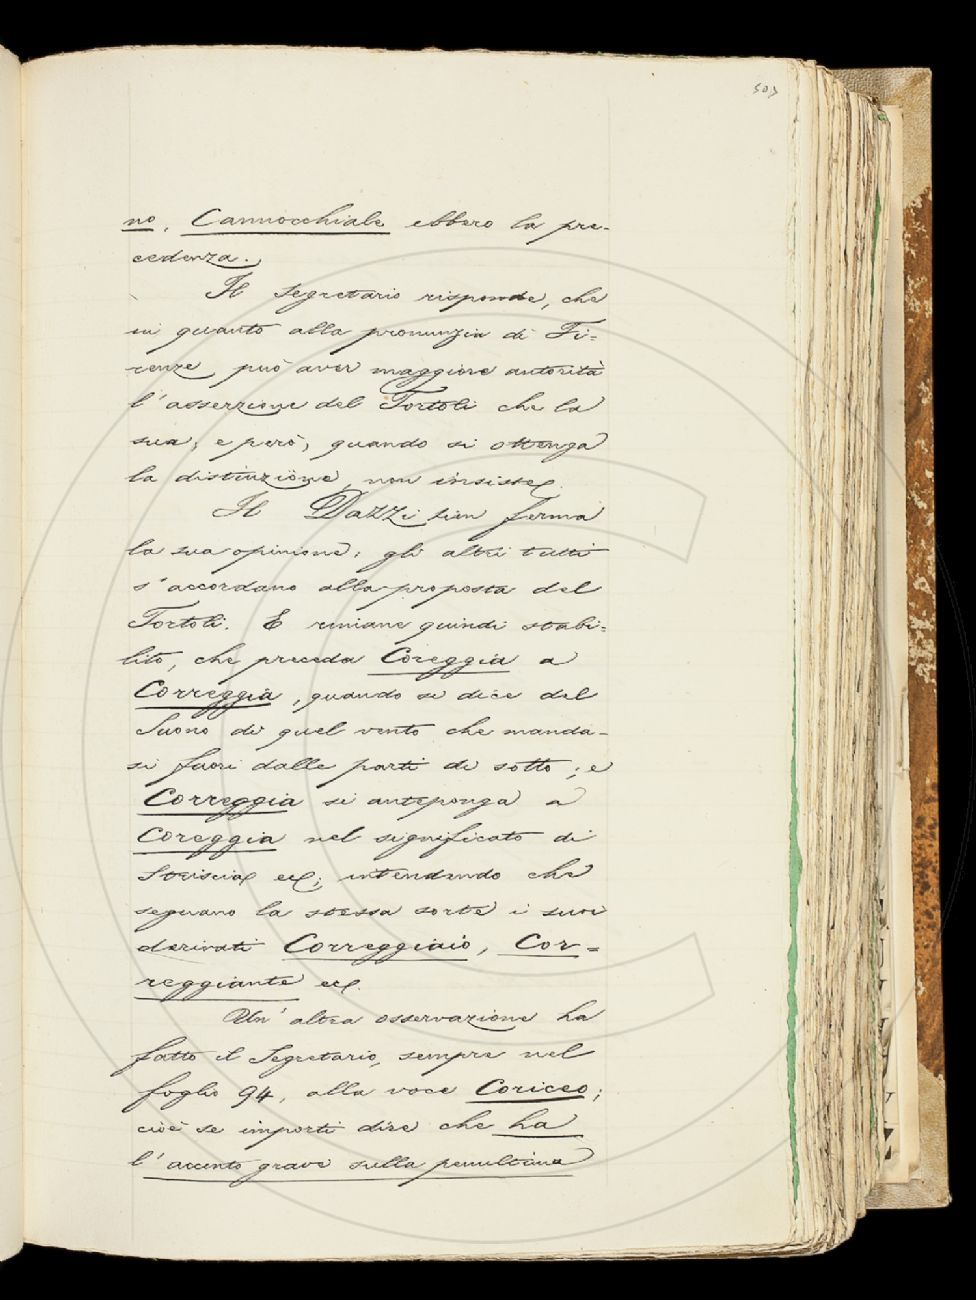 503
no, Cannocchiale ebbero la pre-
cedenza.
Il Segretario risponde, che
in quanto alla pronunzia di Fi-
renze può aver maggiore autorità
l'asserzione del Tortoli che la
sua; e però, quando si ottenga
la distinzione, non insiste.
Il Dazzi tien ferma
la sua opinione; gli altri tutti
s'accordano alla proposta del
Tortoli. E rimane quindi stabi-
lito, che preceda Coreggia a
Correggia, quando si dice del
Suono di quel vento che manda-
si fuori dalle parti di sotto; e
Correggia si anteponga a
Coreggia nel significato di
Striscia ecc; intendendo che
seguano la stessa sorte i suoi
derivati Correggiaio, Cor-
reggiante ecc.
Un'altra osservazione ha
fatto il Segretario, sempre nel
foglio 94, alla voce Coriceo;
cioè se importi dire che ha
l'accento grave sulla penultima